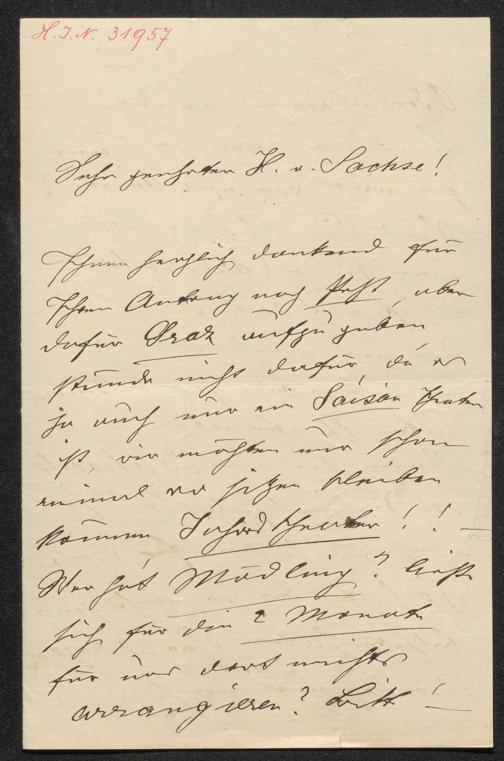 H.I.N. 31957
Sehr geehrter H. v. Sachse!
Ihnen herzlich dankend für
Ihren Antrag nach Pest, aber
dafür Graz aufzugeben
stünde nicht dafür, da es
ja auch nur ein Saison theater
ist wir möchten nur schon
einmal wo sitzen bleiben
können Jahrestheater!! –
Wer hat Mödling? ließe
sich für die 2 Monate
für uns dort nichts
arrangieren? Bitte! –